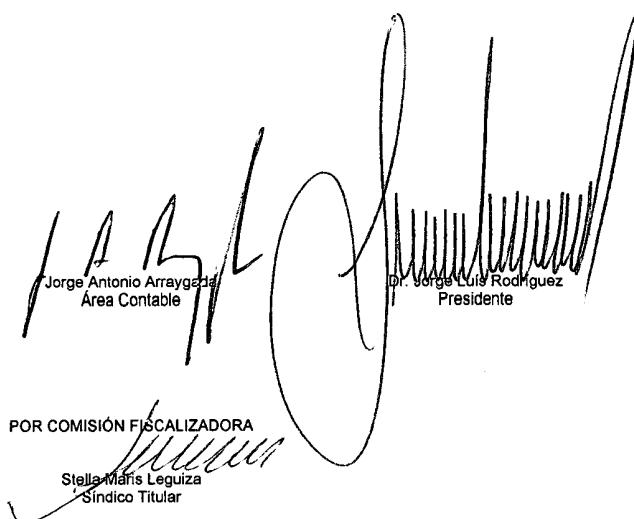 Jorge Antonio Arraygada
Área Contable
Dr. Jorge Luis Rodríguez
Presidente
POR COMISIÓN FISCALIZADORA
Stella Maris Leguiza
Síndico Titular